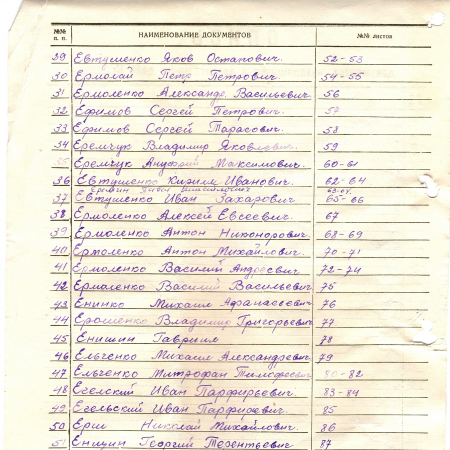 №№ п. п. НАИМЕНОВАНИЕ ДОКУМЕНТОВ №№ листов
29 Евтушенко Яков Остапович. 52-53
30 Ермолай Петр Петрович. 54-55
31 Ермоленко Александр Васильевич 56
32 Ефимов Сергей Петрович. 57
33 Ефимов Сергей Тарасович. 58
34 Еремчук Владимир Яковлевич. 59
35 Еремчук Ануфрий Максимович. 60-61
36 Евтушенко Кирилл Иванович. 62-64
37 Евтушенко Иван Захарович. 65-66
38 Ермоленко Алексей Евсеевич 67
39 Ермоленко Антон Никонорович 68-69
40 Ермоленко Антон Михайлович. 70-71
41 Ермоленко Василий Андреевич 72-74
42 Ермаленко Василий Васильевич 75
43 Енинко Михаил Афанасевич 76
44 Ерошенко Владимир Григорьевич 77
45 Енишин Гавриил 78
46 Ельченко Михаил Александревич 79
47 Ельченко Митрофан Тимофеевич 80-82
48 Егелский Иван Парфирьевич. 83-84
49 Егельский Иван Парфирович. 85
50 Ерш Николай Михайлович. 86
51 Енишин Георгий Терентьевич 87